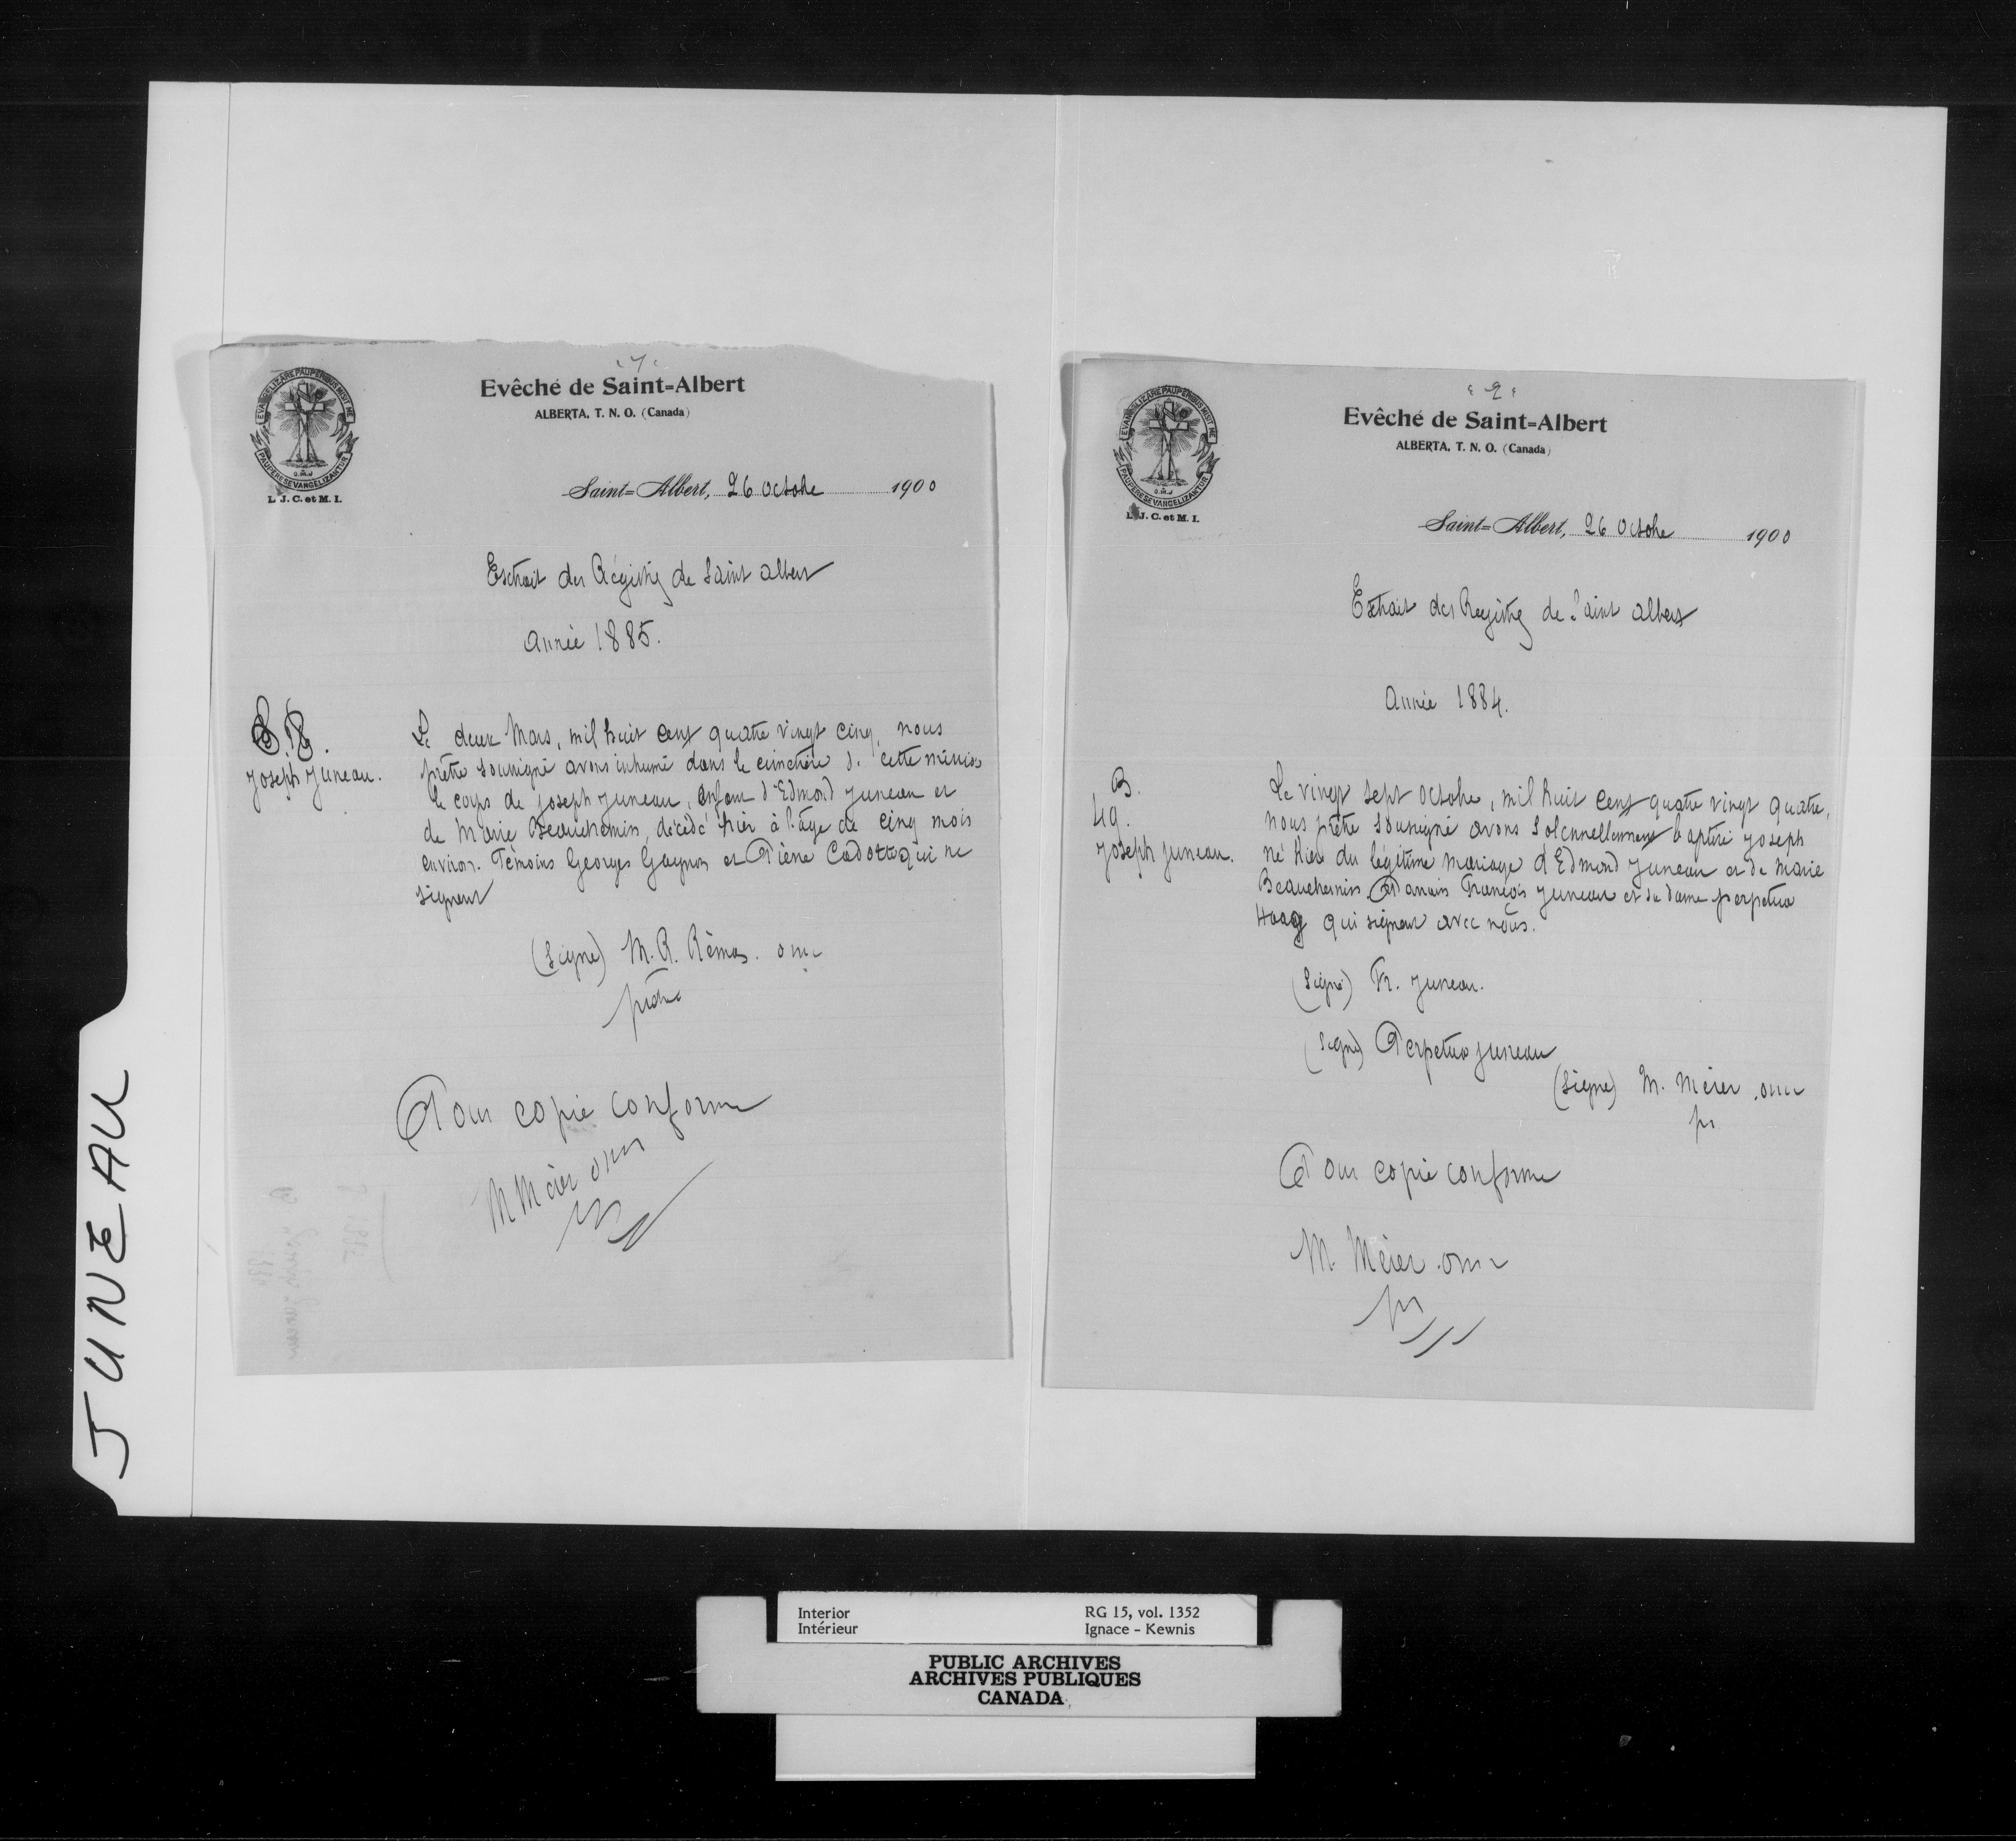 JUNEAU
EVANGELIZARE PAUPERIBUS MISIT ME
PAUPERES EVANGELIZANTUR
O.M.J
L. J. C. et M. I.
Evêché de Saint=Albert
ALBERTA, T. N. O. (Canada)
Saint=Albert, 26 Octobre 1900
Extrait des Régistres de Saint Albert
Année 1885.
Joseph Juneau.
Le deux Mars, mil huit cent quatre vingt cinq, nous
prêtre soussigné avons inhumé dans le cimetière de cette mission
le corps de Joseph Juneau, enfant d'Edmond Juneau et
de Marie Beauchemin, décédé hier à l'âge de cinq mois
environ. Témoins Georges Gagnon et Pierre Cadotte qui ne
signent
(Signé) M. R. Rémas. omi
prêtre
Pour copie conforme
M Mérer omi
EVANGELIZARE PAUPERIBUS MISIT ME
PAUPERES EVANGELIZANTUR
O.M.J
L. J. C. et M. I.
"2"
Evêché de Saint=Albert
ALBERTA, T. N. O. (Canada)
Saint=Albert, 26 Octobre 1900
Extrait des Registres de Saint Albert
Année 1884.
B.
49.
Joseph Juneau.
Le vingt sept Octobre, mil huit cent quatre vingt quatre,
nous prêtre soussigné avons solennellement baptisé Joseph
né hier du légitime mariage d'Edmond Juneau et de Marie
Beauchemin. Parrain François Juneau et sa dame perpetua
Haag qui signent avec nous.
(Signé) Fr. Juneau.
(Signé) Perpetua Juneau
(Signé) M. Mérer. omi
pr
Pour copie conforme
M. Mérer. omi
Interior RG 15, vol. 1352
Intérieur Ignace - Kewnis
PUBLIC ARCHIVES
ARCHIVES PUBLIQUES
CANADA